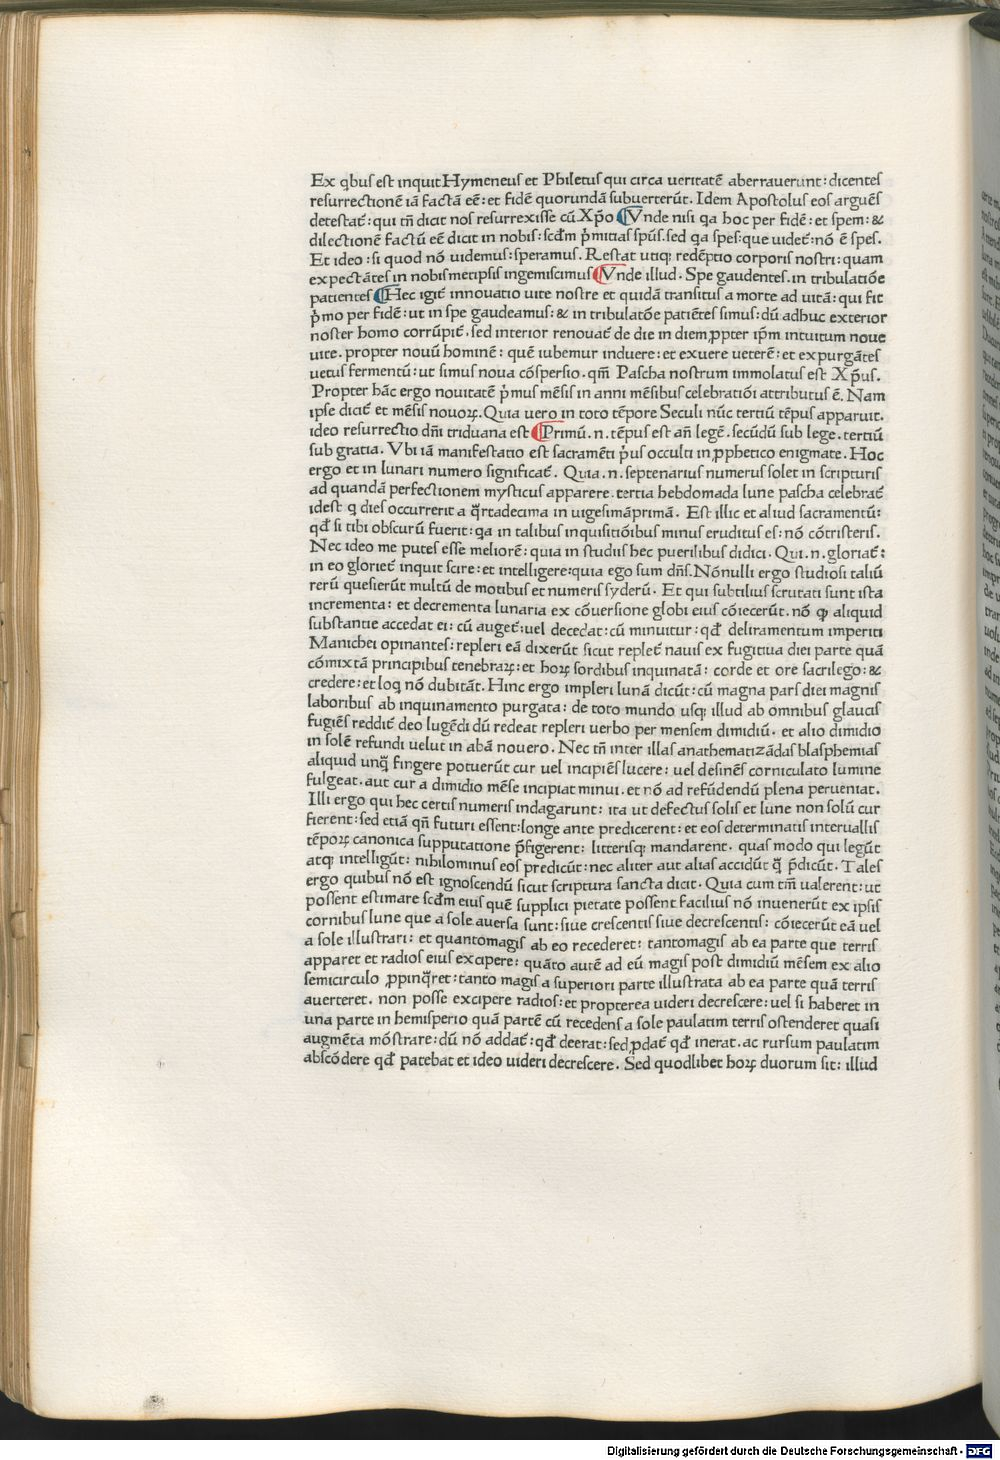 Ex qbuſ eſt inquit Hymeneuſ et Philetuſ qui circa ueritatē aberrauerunt: dicenteſ
reſurrectionē iā factā eē: et fidē quorundā ſubuerterūt. Idem Apoſtoluſ eoſ arguēſ
deteſtat᷑: qui tn̄ dicit noſ reſurrexiſſe cū Xp̄o ¶Vnde niſi qa hoc per fidē: et ſpem: &
dilectionē factū eē dicit in nobiſ: ſcd̄m p̄mitiaſ ſpūſ. ſed qa ſpeſ: que uidet᷑: nō ē ſpeſ.
Et ideo: ſi quod nō uidemuſ: ſperamuſ. Reſtat utiq; redēptio corporiſ noſtri: quam
expectāteſ in nobiſmetipſiſ ingemiſcimuſ ¶Vnde illud. Spe gaudenteſ. in tribulatiōe
patienteſ ¶Hec igit᷑ innouatio uite noſtre et quidā tranſituſ a morte ad uitā: qui fit
p̄mo per fidē: ut in ſpe gaudeamuſ: & in tribulatōe patiēteſ ſimuſ: dū adhuc exterior
noſter homo corrūpit᷑. ſed interior renouat᷑ de die in diem ꝓpter ip̄m intuitum noue
uite. propter nouū hominē: quē iubemur induere: et exuere ueterē: et expurgāteſ
uetuſ fermentū: ut ſimuſ noua cōſperſio. qm̄ Paſcha noſtrum immolatuſ eſt Xp̄uſ.
Propter hāc ergo nouitatē p̄muſ mēſiſ in anni mēſibuſ celebratiōi attributuſ ē. Nam
ipſe dicit᷑ et mēſiſ nouoꝝ. Quia uero in toto tēpore Seculi nūc tertiū tēpuſ apparuit.
ideo reſurrectio dn̄i triduana eſt ¶Primū. n. tēpuſ eſt an̄ legē. ſecūdū ſub lege. tertiū
ſub gratia. Vbi iā manifeſtatio eſt ſacramēti p̄uſ occulti in ꝓphetico enigmate. Hoc
ergo et in lunari numero ſignificat᷑. Quia. n. ſeptenariuſ numeruſ ſolet in ſcripturiſ
ad quandā perfectionem myſticuſ apparere. tertia hebdomada lune paſcha celebrat᷑
ideſt q dieſ occurrerit a q̄rtadecima in uigeſimāprimā. Eſt illic et aliud ſacramentū:
qd̄ ſi tibi obſcurū fuerit: qa in talibuſ inquiſitiōibuſ minuſ erudituſ eſ: nō cōtriſteriſ.
Nec ideo me puteſ eſſe meliorē: quia in ſtudiiſ hec puerilibuſ didici. Qui. n. gloriat᷑:
in eo gloriet᷑ inquit ſcire: et intelligere: quia ego ſum dn̄ſ. Nōnulli ergo ſtudioſi taliū
rerū queſierūt multū de motibuſ et numeriſ ſyderū. Et qui ſubtiliuſ ſcrutati ſunt iſta
incrementa: et decrementa lunaria ex cōuerſione globi eiuſ cōiecerūt. nō ꝙ aliquid
ſubſtantie accedat ei: cū auget᷑: uel decedat: cū minuitur: qd̄ deliramentum imperiti
Manichei opinanteſ: repleri eā dixerūt ſicut replet᷑ nauiſ ex fugitiua diei parte quā
cōmixtā principibuſ tenebraꝝ: et hoꝝ ſordibuſ inquinatā: corde et ore ſacrilego: &
credere: et loq nō dubitāt. Hinc ergo impleri lunā dicūt: cū magna parſ diei magniſ
laboribuſ ab inquinamento purgata: de toto mundo uſq; illud ab omnibuſ glauciſ
fugiēſ reddit᷑ deo lugēdi dū redeat repleri uerbo per menſem dimidiū. et alio dimidio
in ſolē refundi uelut in abā nouero. Nec tn̄ inter illaſ anathematizādaſ blaſphemiaſ
aliquid unq̄ fingere potuerūt cur uel incipiēſ lucere: uel deſinēſ corniculato lumine
fulgeat. aut cur a dimidio mēſe incipiat minui. et nō ad refūdendū plena perueniat.
Illi ergo qui hec certiſ numeriſ indagarunt: ita ut defectuſ ſoliſ et lune non ſolū cur
fierent: ſed etiā qn̄ futuri eſſent: longe ante predicerent: et eoſ determinatiſ interualliſ
tēpoꝝ canonica ſupputatione p̄figerent: litteriſq; mandarent. quaſ modo qui legūt
atq; intelligūt: nihilominuſ eoſ predicūt: nec aliter aut aliaſ accidūt q̄ p̄dicūt. Taleſ
ergo quibuſ nō eſt ignoſcendū ſicut ſcriptura ſancta dicit. Quia cum tm̄ ualerent: ut
poſſent eſtimare ſcd̄m eiuſ quē ſupplici pietate poſſent faciliuſ nō inuenerūt ex ipſiſ
cornibuſ lune que a ſole auerſa ſunt: ſiue creſcentiſ ſiue decreſcentiſ: cōiecerūt eā uel
a ſole illuſtrari: et quantomagiſ ab eo recederet: tantomagiſ ab ea parte que terriſ
apparet et radioſ eiuſ excipere: quāto autē ad eū magiſ poſt dimidiū mēſem ex alio
ſemicirculo ꝓpinq̄ret: tanto magiſ a ſuperiori parte illuſtrata ab ea parte quā terriſ
auerteret. non poſſe excipere radioſ: et propterea uideri decreſcere: uel ſi haberet in
una parte in hemiſperio quā partē cū recedenſ a ſole paulatim terriſ oſtenderet quaſi
augmēta mōſtrare: dū nō addat᷑: qd̄ deerat: ſed ꝓdat᷑ qd̄ inerat. ac rurſum paulatim
abſcōdere qd̄ patebat et ideo uideri decreſcere. Sed quodlibet hoꝝ duorum ſit: illud
Digitalisierung gefördert durch die Deutsche Forschungsgemeinschaft - DFG